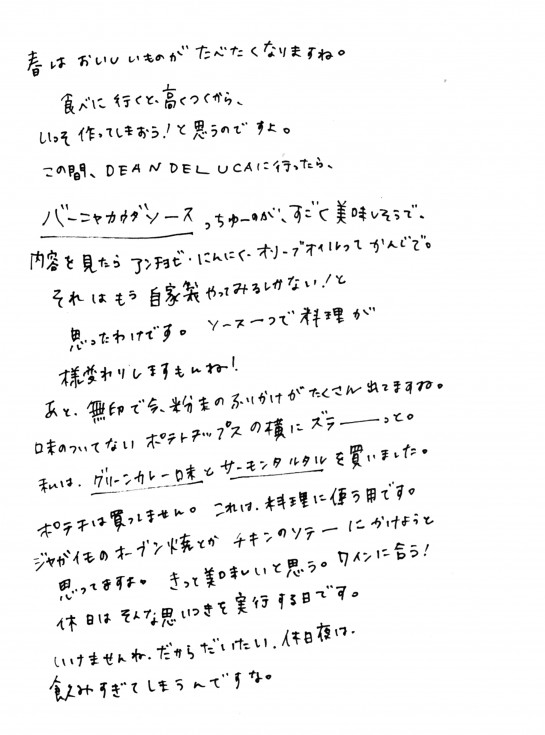 春は おいしいものが たべたくなりますね。
食べに 行くと、高くつくから、
いっそ 作ってしまおう！と 思うのですよ。
この間、DEAN DELUCAに行ったら、
バーニャカウダソース っちゅーのが、すごく 美味しそうで、
内容を見たら アンチョビ・にんにく・オリーブオイルって かんじで。
それはもう 自家製やってみるしかない！と
思ったわけです。 ソース一つで 料理が
様変わりしますもんね！
あと、無印で今、粉末のふりかけが たくさん 出てますね。
味のついてない ポテトチップスの横に ズラーーっと。
私は、グリーンカレー味と サーモンタルタル を 買いました。
ポテチは買ってません。 これは、料理に使う用です。
ジャガイモのオーブン焼とか チキンのソテーにかけようと
思ってますよ。 きっと美味しいと思う。ワインに合う！
休日は そんな思いつきを実行する日です。
いけませんね、だからだいたい、休日夜は、
飲みすぎてしまうんですな。